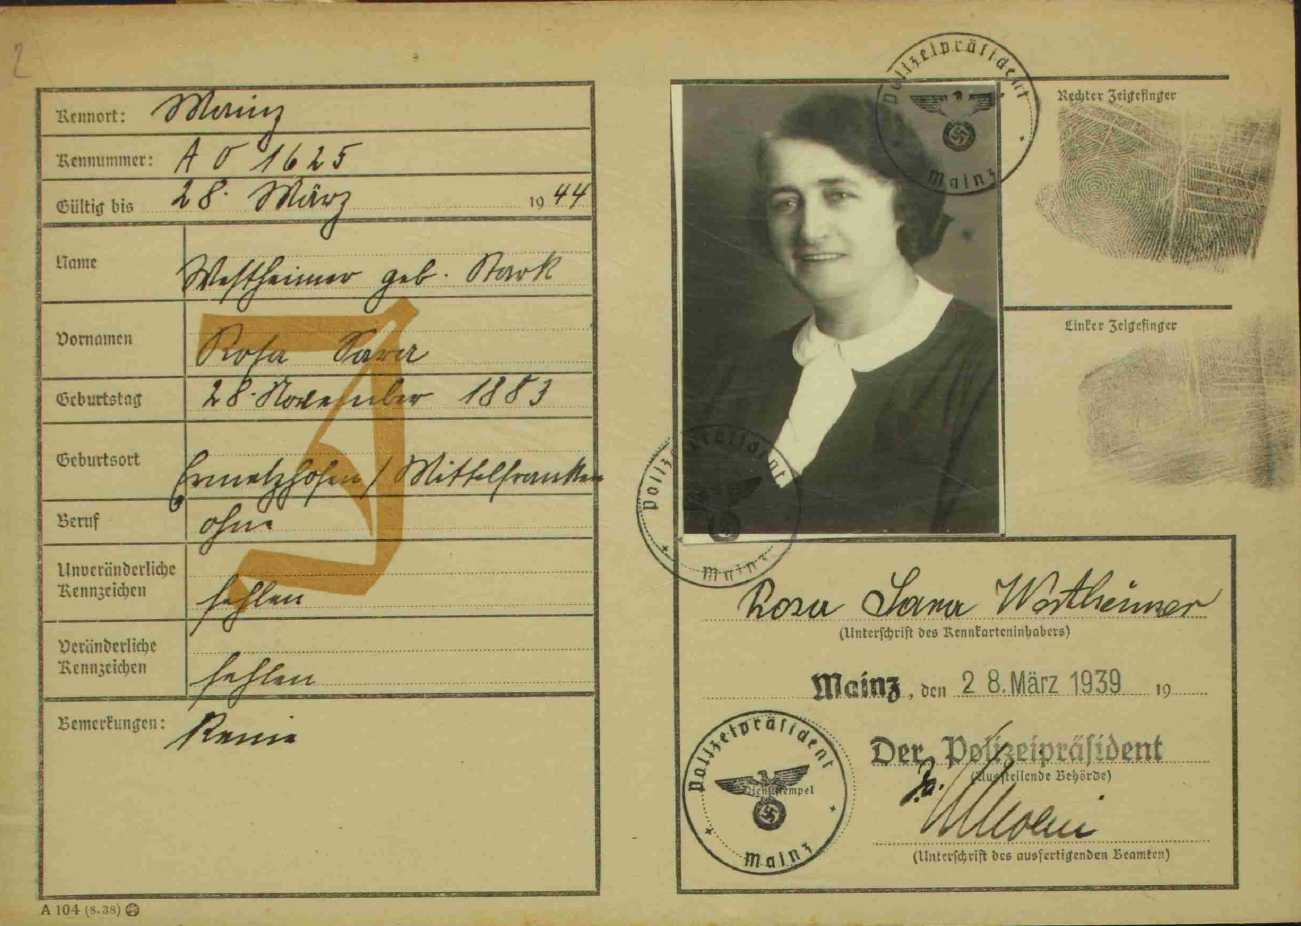 2
Kennort: Mainz
Kennummer: A 0 1625
Gültig bis 28. März 1944
Name Westheimer geb. Stark
Vornamen Rosa Sara
Geburtstag 28. November 1883
Geburtsort Ermetzhofen / Mittelfranken
Beruf ohne
Unveränderliche
Kennzeichen fehlen
Veränderliche
Kennzeichen fehlen
Bemerkungen: Keine
J
A 104 (8.38)
Polizeipräsident
Mainz
Rechter Zeigefinger
Linker Zeigefinger
Polizeipräsident
Mainz
Rosa Sara Westheimer
(Unterschrift des Kennkarteninhabers)
Mainz, den 28. März 1939 19
Der Polizeipräsident
(Ausstellende Behörde)
Polizeipräsident
Dienststempel
Mainz
(Unterschrift des ausfertigenden Beamten)